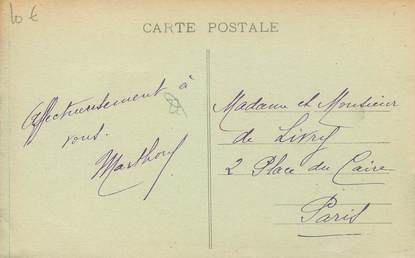 10 €
CARTE POSTALE
Affectueusement à
vous.
Madame et Monsieur
de Livry
2 Place du Caire
Paris